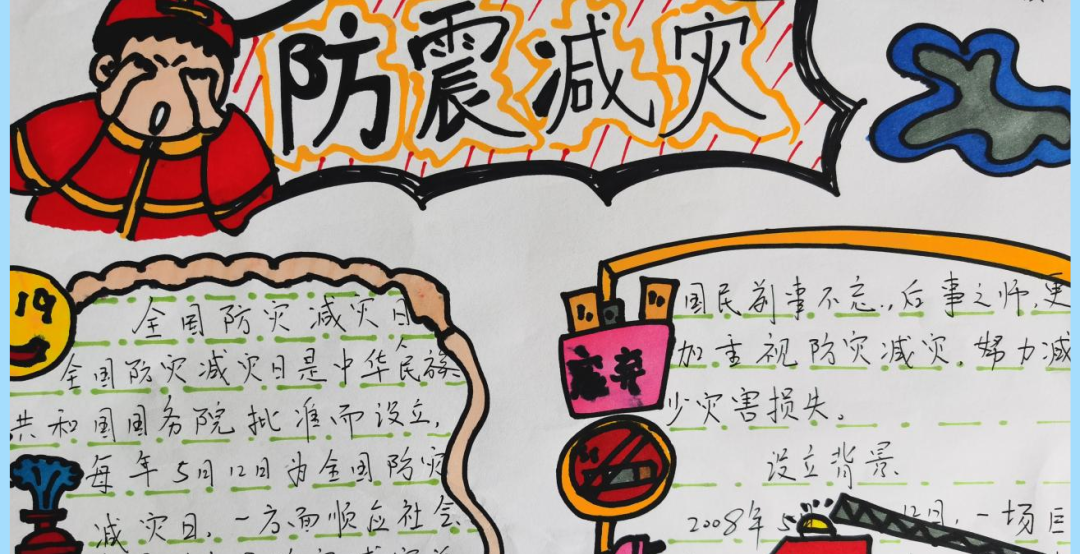 防震减灾
19
全国防灾减灾日
全国防灾减灾日是中华人民族
共和国国务院批准而设立,
每年5月12日为全国防灾
减灾日,一方面顺应社会
国民前事不忘..后事之师,更
加重视防灾减灾,努力减
少灾害损失。
废弃
设立背景
2008年5 12日,一场巨